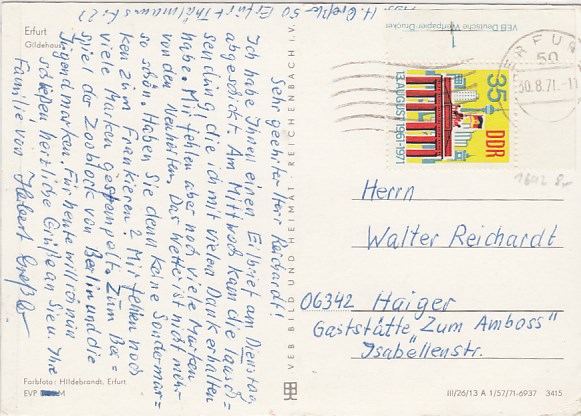 Abs. H. Greßler 50 Erfurt Thälmannstr. 22
VEB Deutsche Wertpapier-Druckerei
Erfurt
Gildehaus
Sehr geehrter Herr Reichardt!
Ich habe Ihnen einen Eilbrief am Dienstag
abgeschickt. Am Mittwoch kam die Tausch=
sendung, die ich mit vielem Dank erhalten
habe. Mir fehlen aber noch viele Marken
von den Neuheiten. Das Wetter ist nicht mehr
so schön. Haben Sie denn keine Sondermar=
ken zum Frankieren? Mir fehlen noch
viele Marken gestempelt. Zum Bei=
spiel der Zooblock von Berlin und die
Jugendmarken. Für heute will ich nun
schließen herzliche Grüße an Sie u. Ihre
Familie von Hubert Greßler
Farbfoto: Hildebrandt, Erfurt
EVP M
VEB BILD UND HEIMAT · REICHENBACH I. V.
ERFURT
50
30.8.71.-11
35
DDR
13. AUGUST 1961-1971
1692
Herrn
Walter Reichardt
06342 Haiger
Gaststätte "Zum Amboss"
Isabellenstr.
III/26/13 A 1/57/71-6937 3415